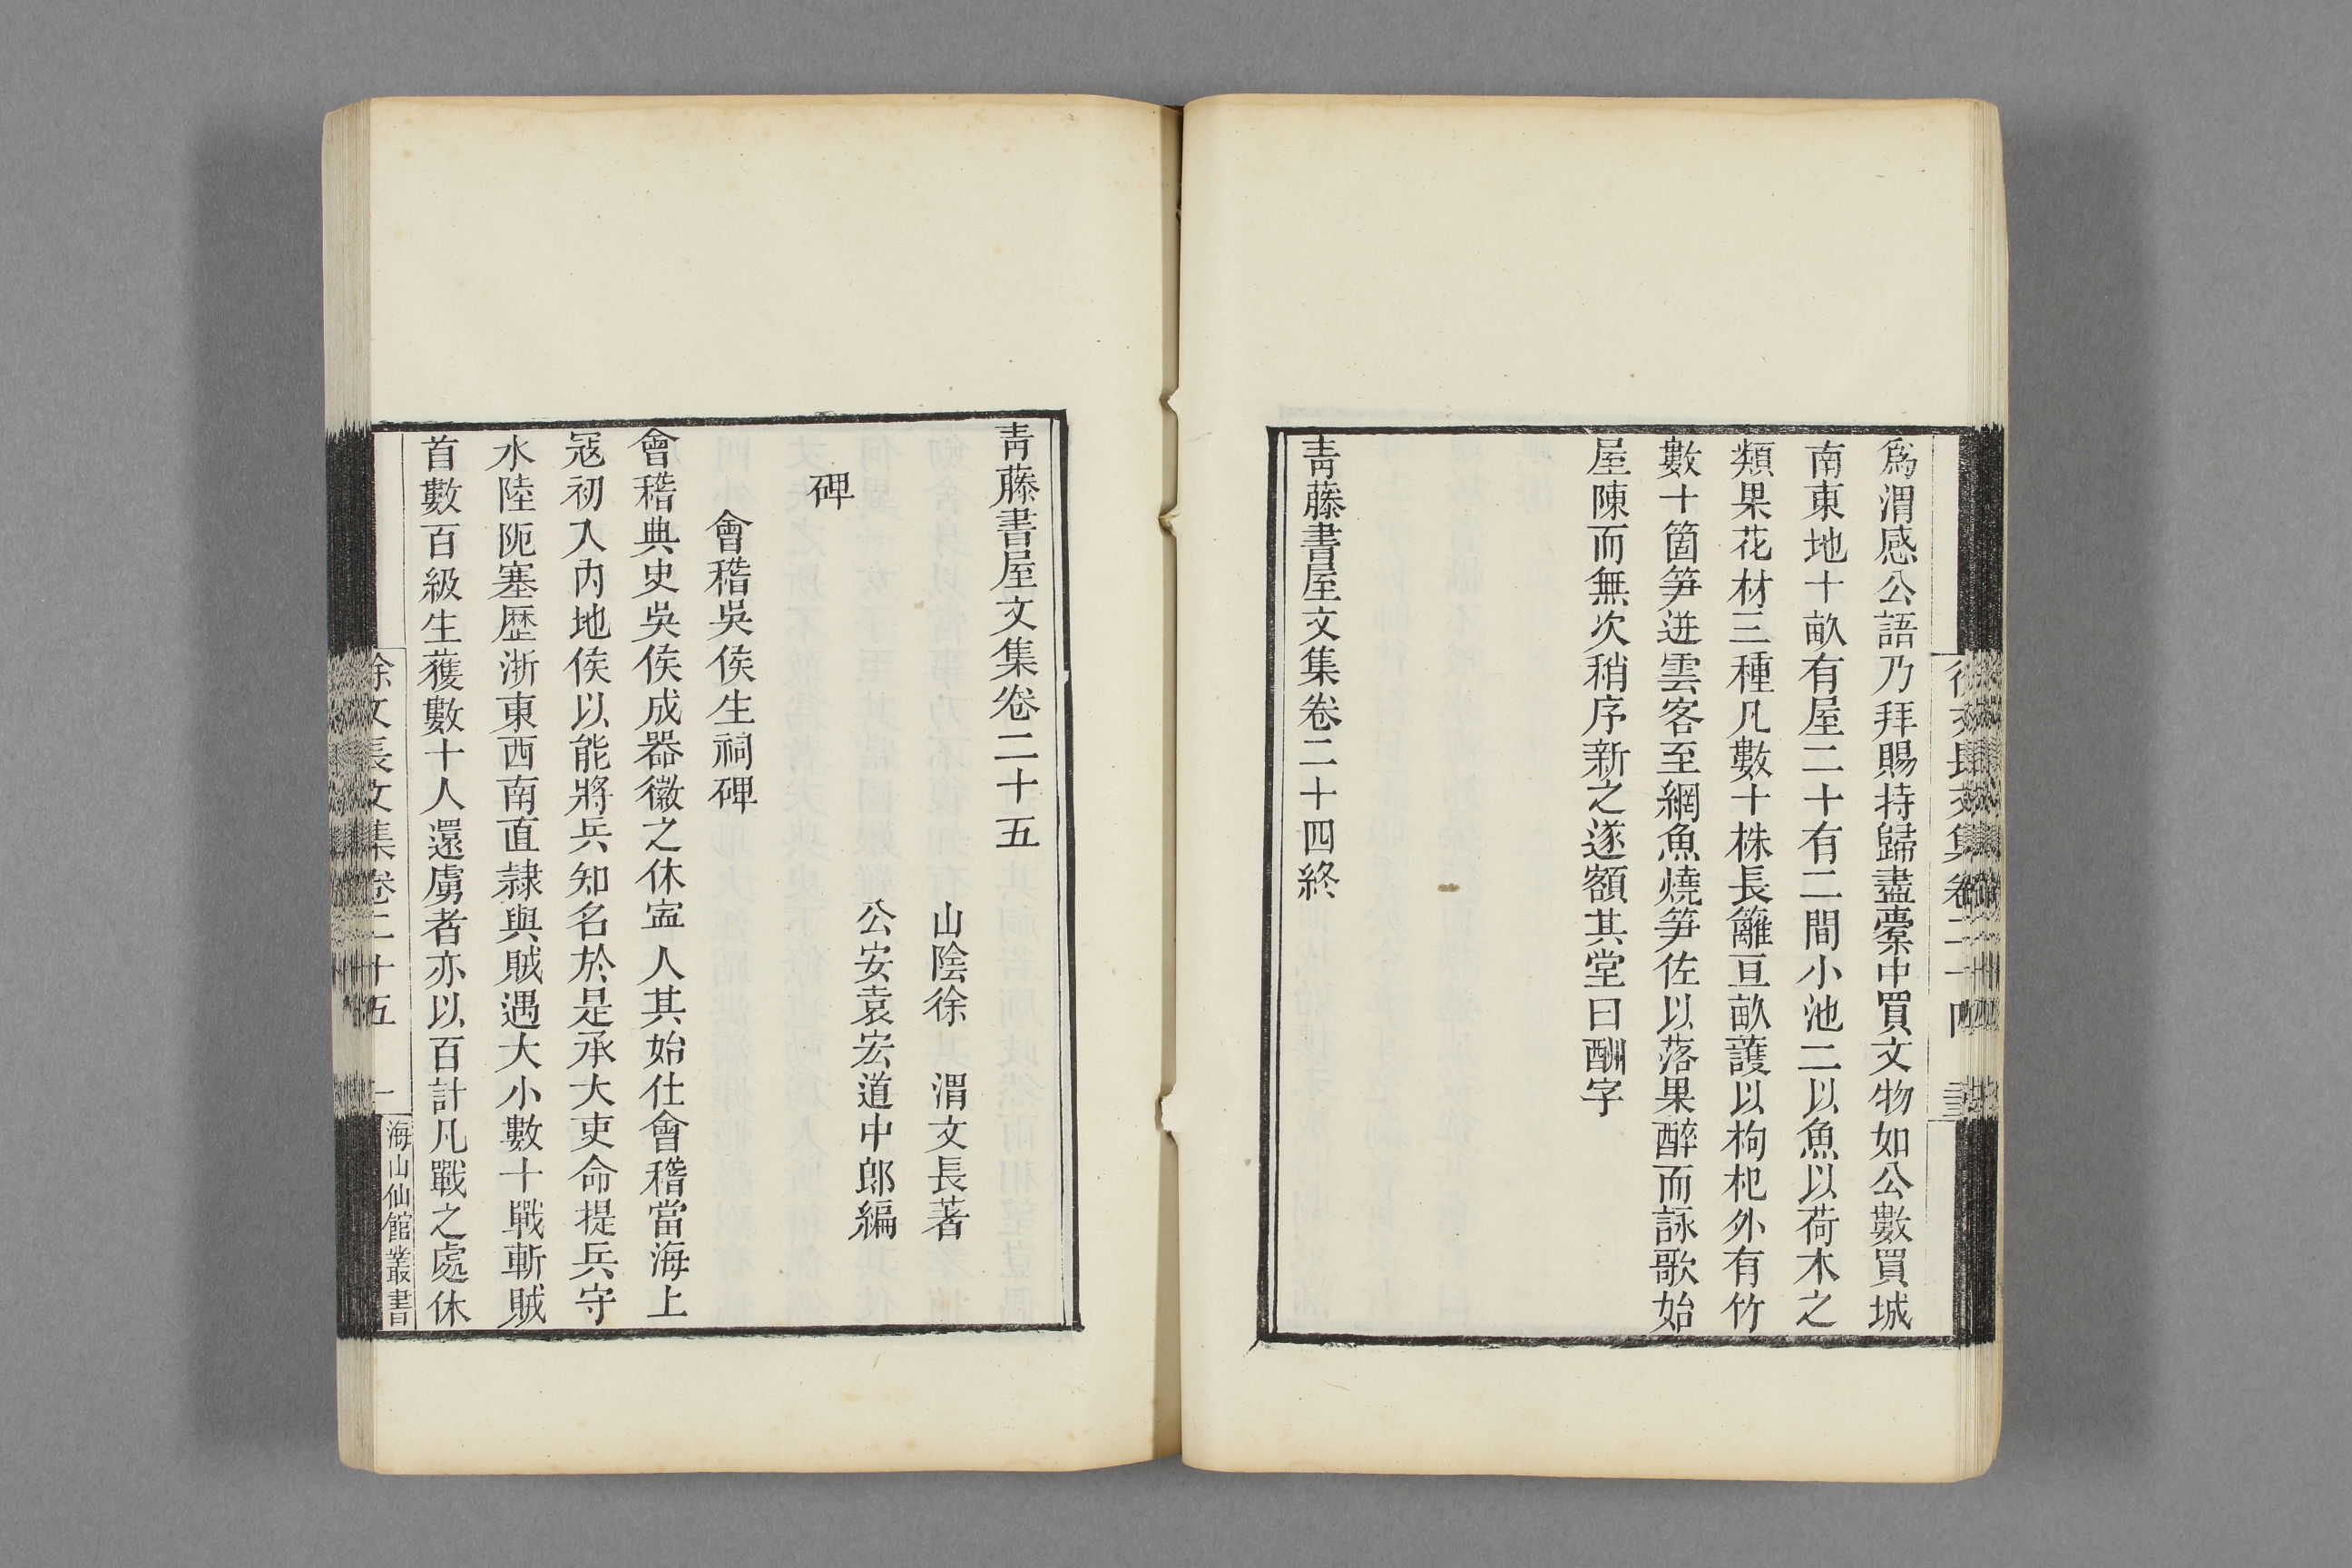 爲渭感公語乃拜賜持歸盡橐中買文物如公數買城
南東地十畝有屋二十有二間小池二以魚以荷木之
類果花材三種凡數十株長籬亘畝護以枸杞外有竹
數十箇笋迸雲客至網魚燒笋佐以落果醉而詠歌始
屋陳而無次稍序新之遂額其堂曰酬字
青藤書屋文集卷二十四終
青藤書屋文集卷二十五
山陰徐 渭文長著
公安袁宏道中郎編
碑
會稽吳侯生祠碑
會稽典史吳侯成器徽之休寍人其始仕會稽當海上
寇初入內地侯以能將兵知名於是承大吏命提兵守
水陸阨塞歷浙東西南直隷與賊遇大小數十戰斬賊
首數百級生獲數十人還虜者亦以百計凡戰之處休
徐文長文集卷二十五 一 海山仙館叢書